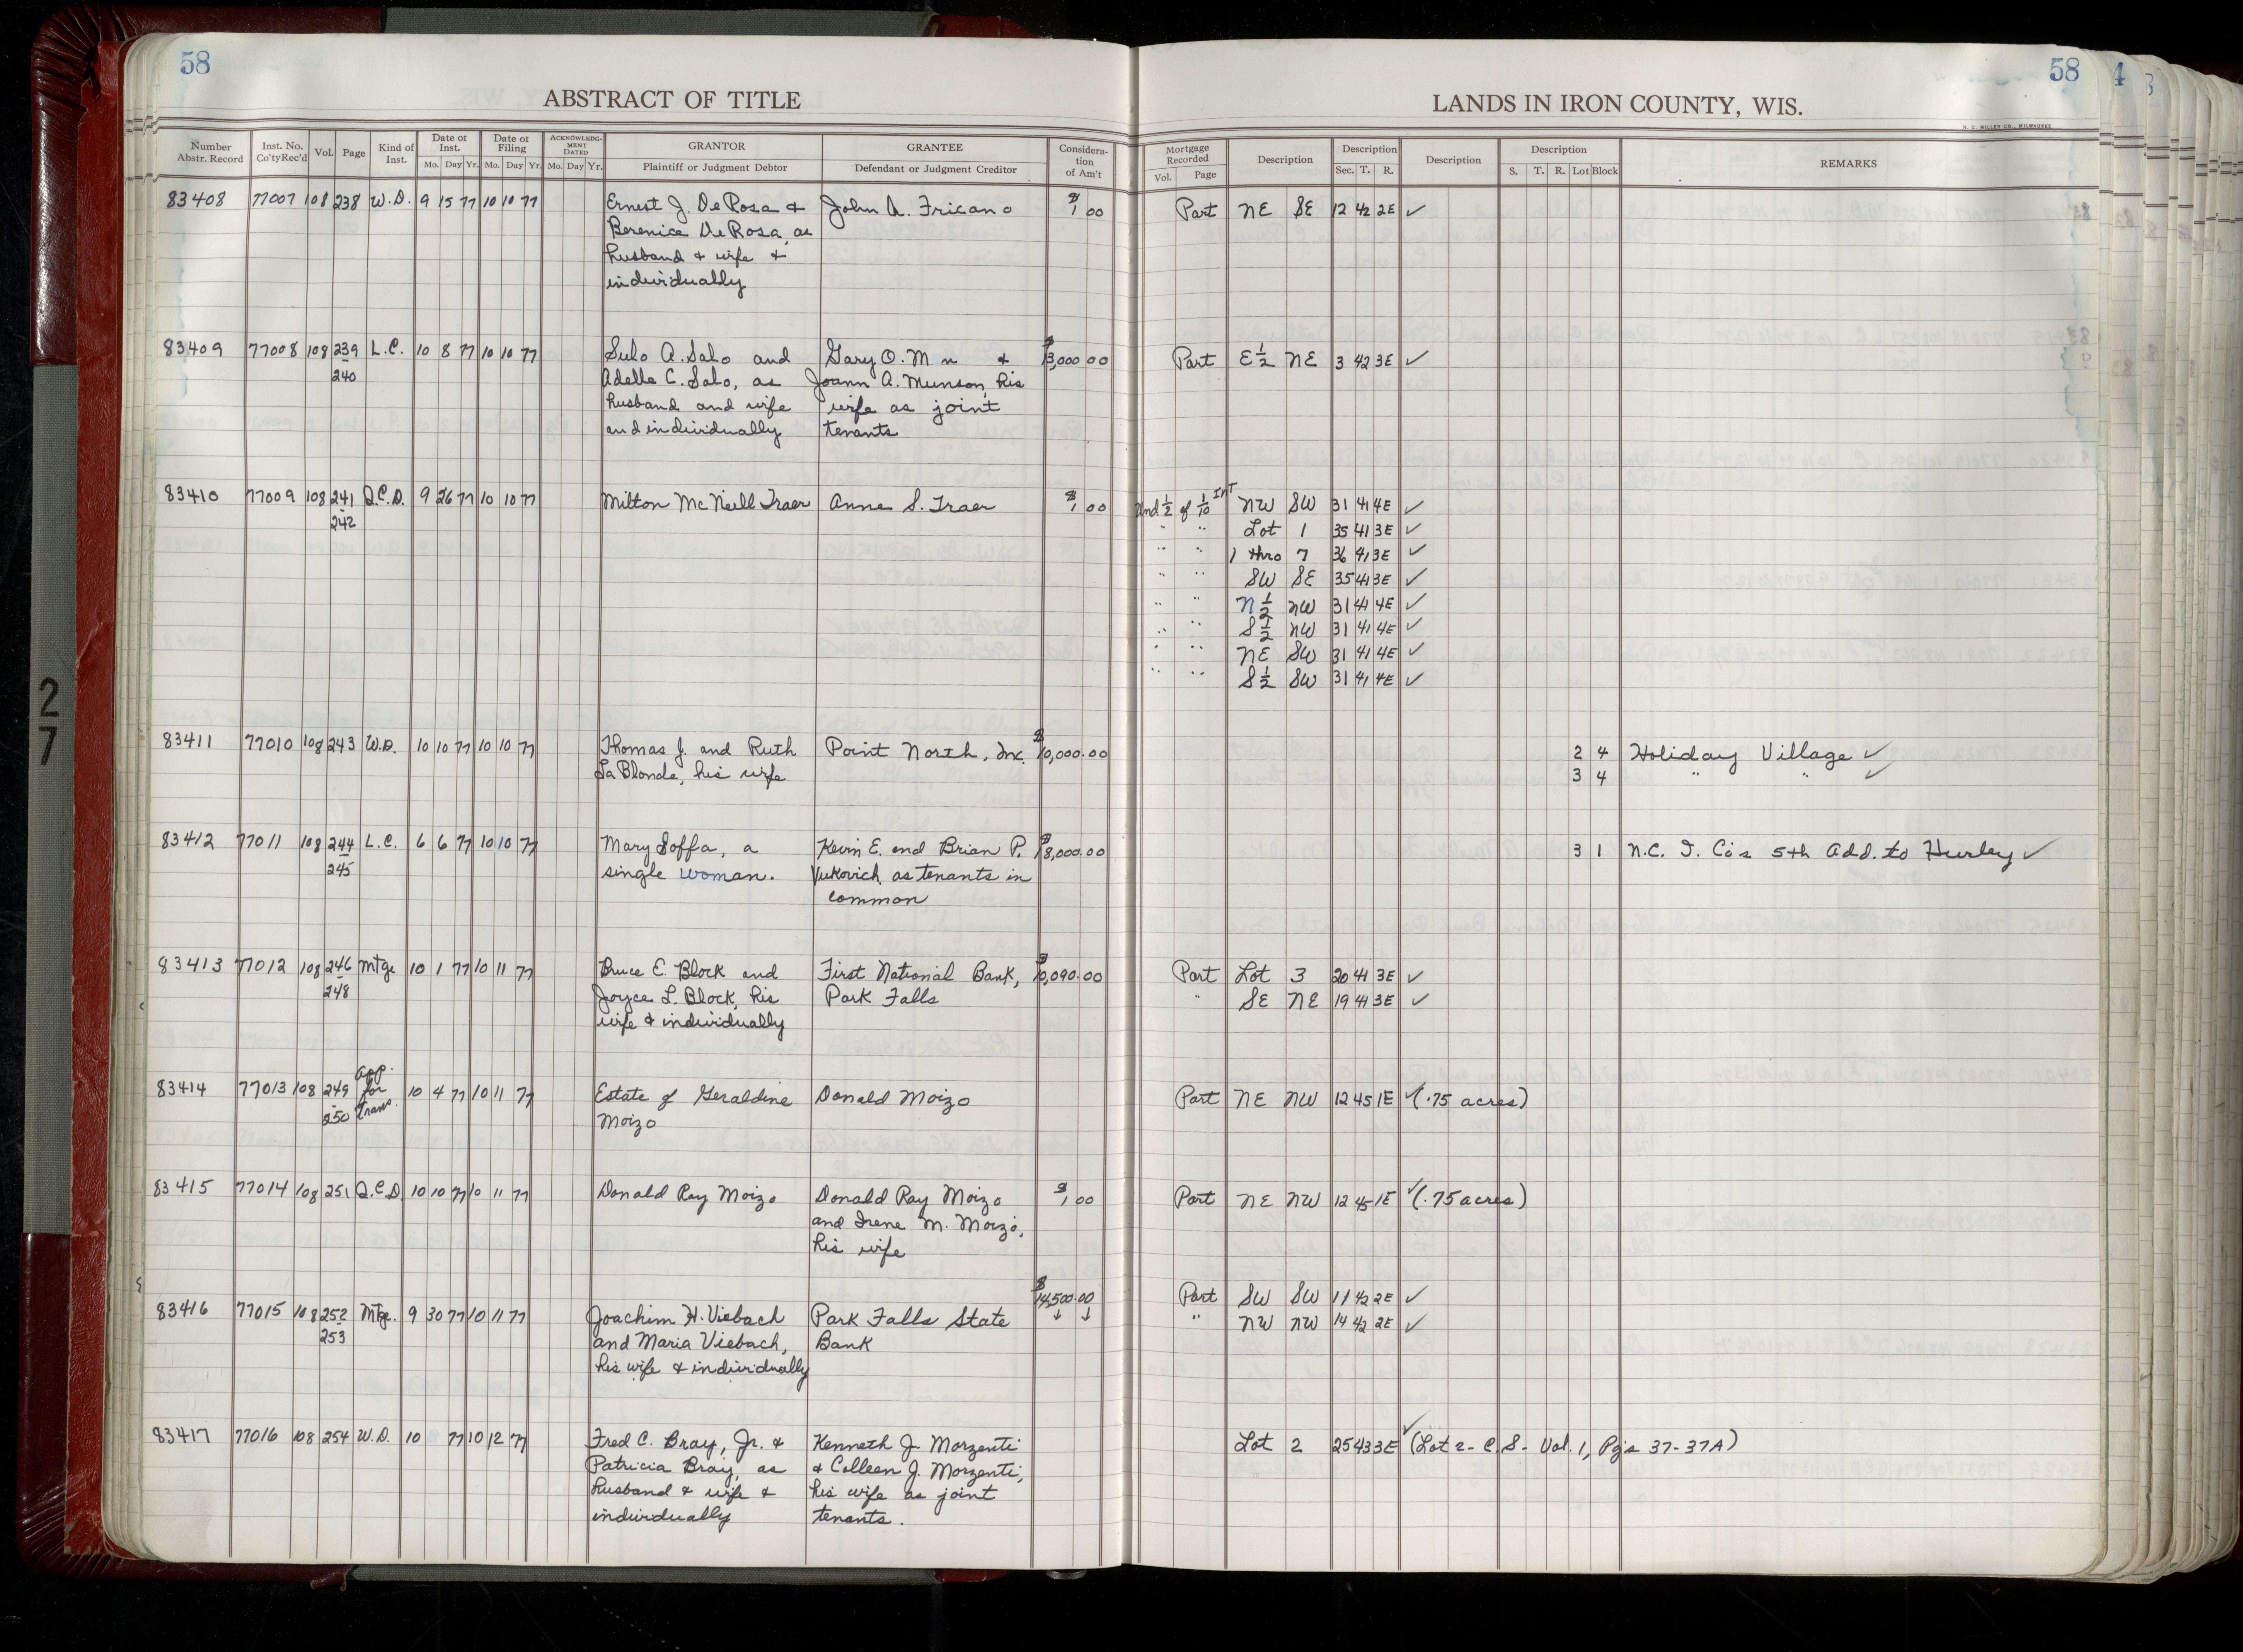 58
ABSTRACT OF TITLE
Number Abstr. Record | Inst. No. Co'ty Rec'd | Vol. | Page | Kind of Inst. | Date of Inst. Mo. Day Yr. | Date of Filing Mo. Day Yr. | ACKNOWLEDGMENT DATED Mo. Day Yr. | GRANTOR Plaintiff or Judgment Debtor | GRANTEE Defendant or Judgment Creditor | Consideration of Am't
58
LANDS IN IRON COUNTY, WIS.
H. C. MILLER CO., MILWAUKEE
Mortgage Recorded Vol. Page | Description | Description Sec. T. R. | Description | Description S. T. R. Lot Block | REMARKS
83408 77007 108 238 W.D. 9 15 77 10 10 77 Ernest J. DeRosa & John A. Fricano $1 00 Part NE SE 12 42 2E ✓
Berenice DeRosa, as
husband & wife &
individually
83409 77008 108 239 L.C. 10 8 77 10 10 77 Sulo A. Salo and Gary O. M n & $3,000 00 Part E½ NE 3 42 3E ✓
240 Adella C. Salo, as Joann A. Munson, his
husband and wife wife as joint
and individually tenants
83410 77009 108 241 Q.C.D. 9 26 77 10 10 77 Milton McNeill Traer Anne S. Traer $1 00 Und ½ of 1/10 Int NW SW 31 41 4E ✓
242 " " Lot 1 35 41 3E ✓
" " 1 thro 7 36 41 3E ✓
" " SW SE 35 41 3E ✓
" " N½ NW 31 41 4E ✓
" " S½ NW 31 41 4E ✓
" " NE SW 31 41 4E ✓
" " S½ SW 31 41 4E ✓
27
83411 77010 108 243 W.D. 10 10 77 10 10 77 Thomas J. and Ruth Point North, Inc. $10,000.00 2 4 Holiday Village ✓
LaBlonde, his wife 3 4 " " ✓
83412 77011 108 244 L.C. 6 6 77 10 10 77 Mary Soffa, a Kevin E. and Brian P. $8,000.00 3 1 N.C. I. Co's 5th Add. to Hurley ✓
245 single woman. Vukovich, as tenants in
common
83413 77012 108 246 Mtge 10 1 77 10 11 77 Bruce E. Block and First National Bank, $10,090.00 Part Lot 3 20 41 3E ✓
248 Joyce L. Block, his Park Falls " SE NE 19 41 3E ✓
wife & individually
83414 77013 108 249 App. for Trans. 10 4 77 10 11 77 Estate of Geraldine Donald Moizo Part NE NW 12 45 1E ✓ (.75 acres)
250 Moizo
83415 77014 108 251 Q.C.D. 10 10 77 10 11 77 Donald Ray Moizo Donald Ray Moizo $1 00 Part NE NW 12 45 1E ✓ (.75 acres)
and Irene M. Moizo,
his wife
83416 77015 108 252 Mtge. 9 30 77 10 11 77 Joachim H. Viebach Park Falls State $14,500.00 Part SW SW 11 42 2E ✓
253 and Maria Viebach, Bank " NW NW 14 42 2E ✓
his wife & individually
83417 77016 108 254 W.D. 10 77 10 12 77 Fred C. Bray, Jr. & Kenneth J. Morzenti Lot 2 25 43 3E ✓ (Lot 2- C.S- Vol. 1, Pgs 37-37A)
Patricia Bray, as & Colleen J. Morzenti,
husband & wife & his wife as joint
individually tenants.